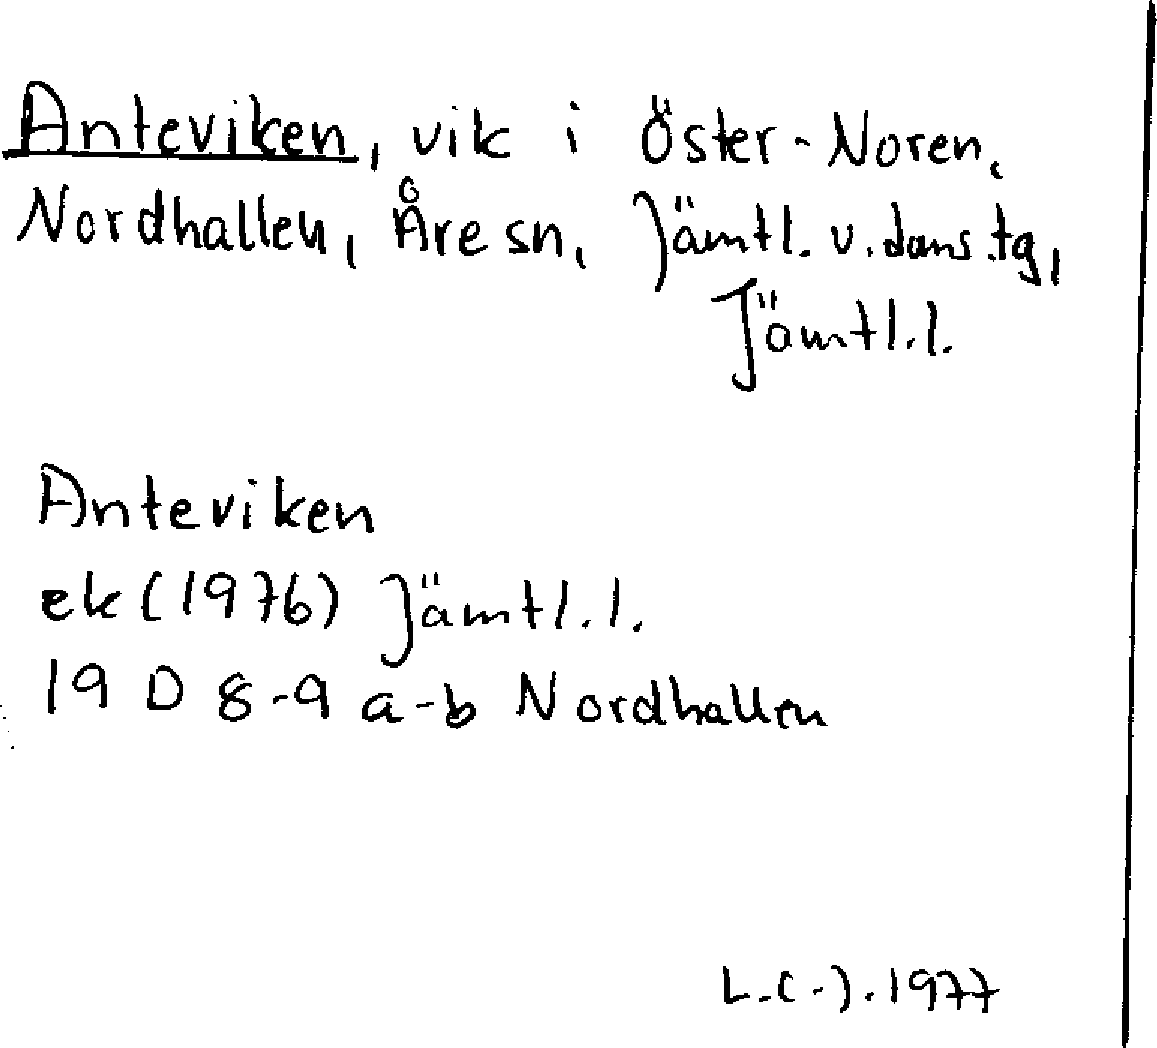 Anteviken, vik i Öster-Noren,
Nordhallen, Åre sn, Jämtl. v. doms.tg,
Jämtl.l.
Anteviken
ek (1976) Jämtl.l.
19 D 8-9 a-b Nordhallen
1977